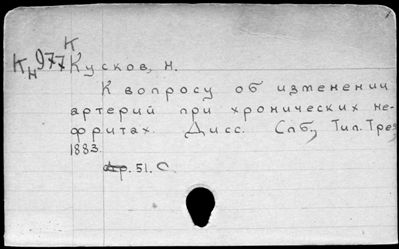 К
Кн 977 Кусков, Н.
К вопросу об изменении
артерий при хронических не-
фритах. Дисс. Спб., Тип. Трей
1883.
51. С.